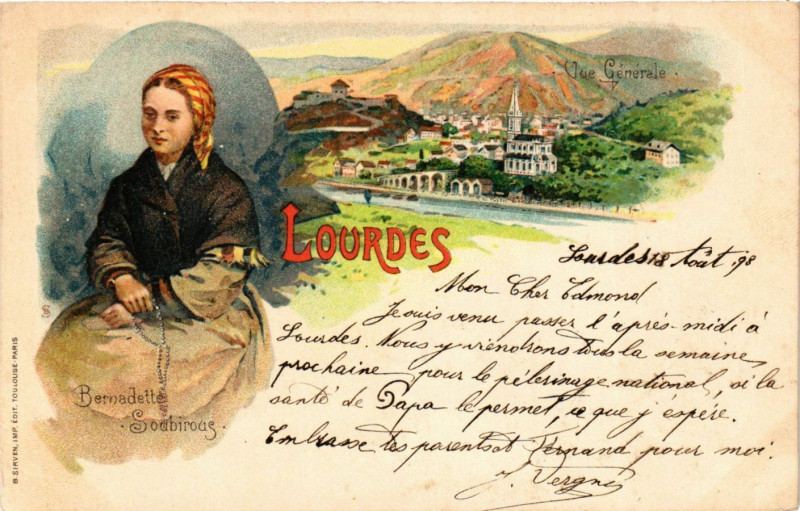 Vue Générale.
LOURDES
Bernadette
Soubirous
B. SIRVEN, IMP. ÉDIT. TOULOUSE-PARIS
Lourdes 18 Août 98
Mon Cher Edmond
Je suis venu passer l'après-midi à
Lourdes. Nous y viendrons tous la semaine
prochaine pour le pèlerinage national, si la
santé de Papa le permet, ce que j'espère.
Embrasse tes parents et Fernand pour moi.
J. Vergnes